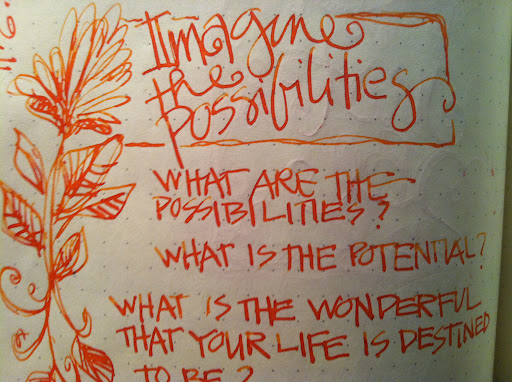 Imagine
the
possibilities
WHAT ARE THE
POSSIBILITIES?
WHAT IS THE POTENTIAL?
WHAT IS THE WONDERFUL
THAT YOUR LIFE IS DESTINED
TO BE?